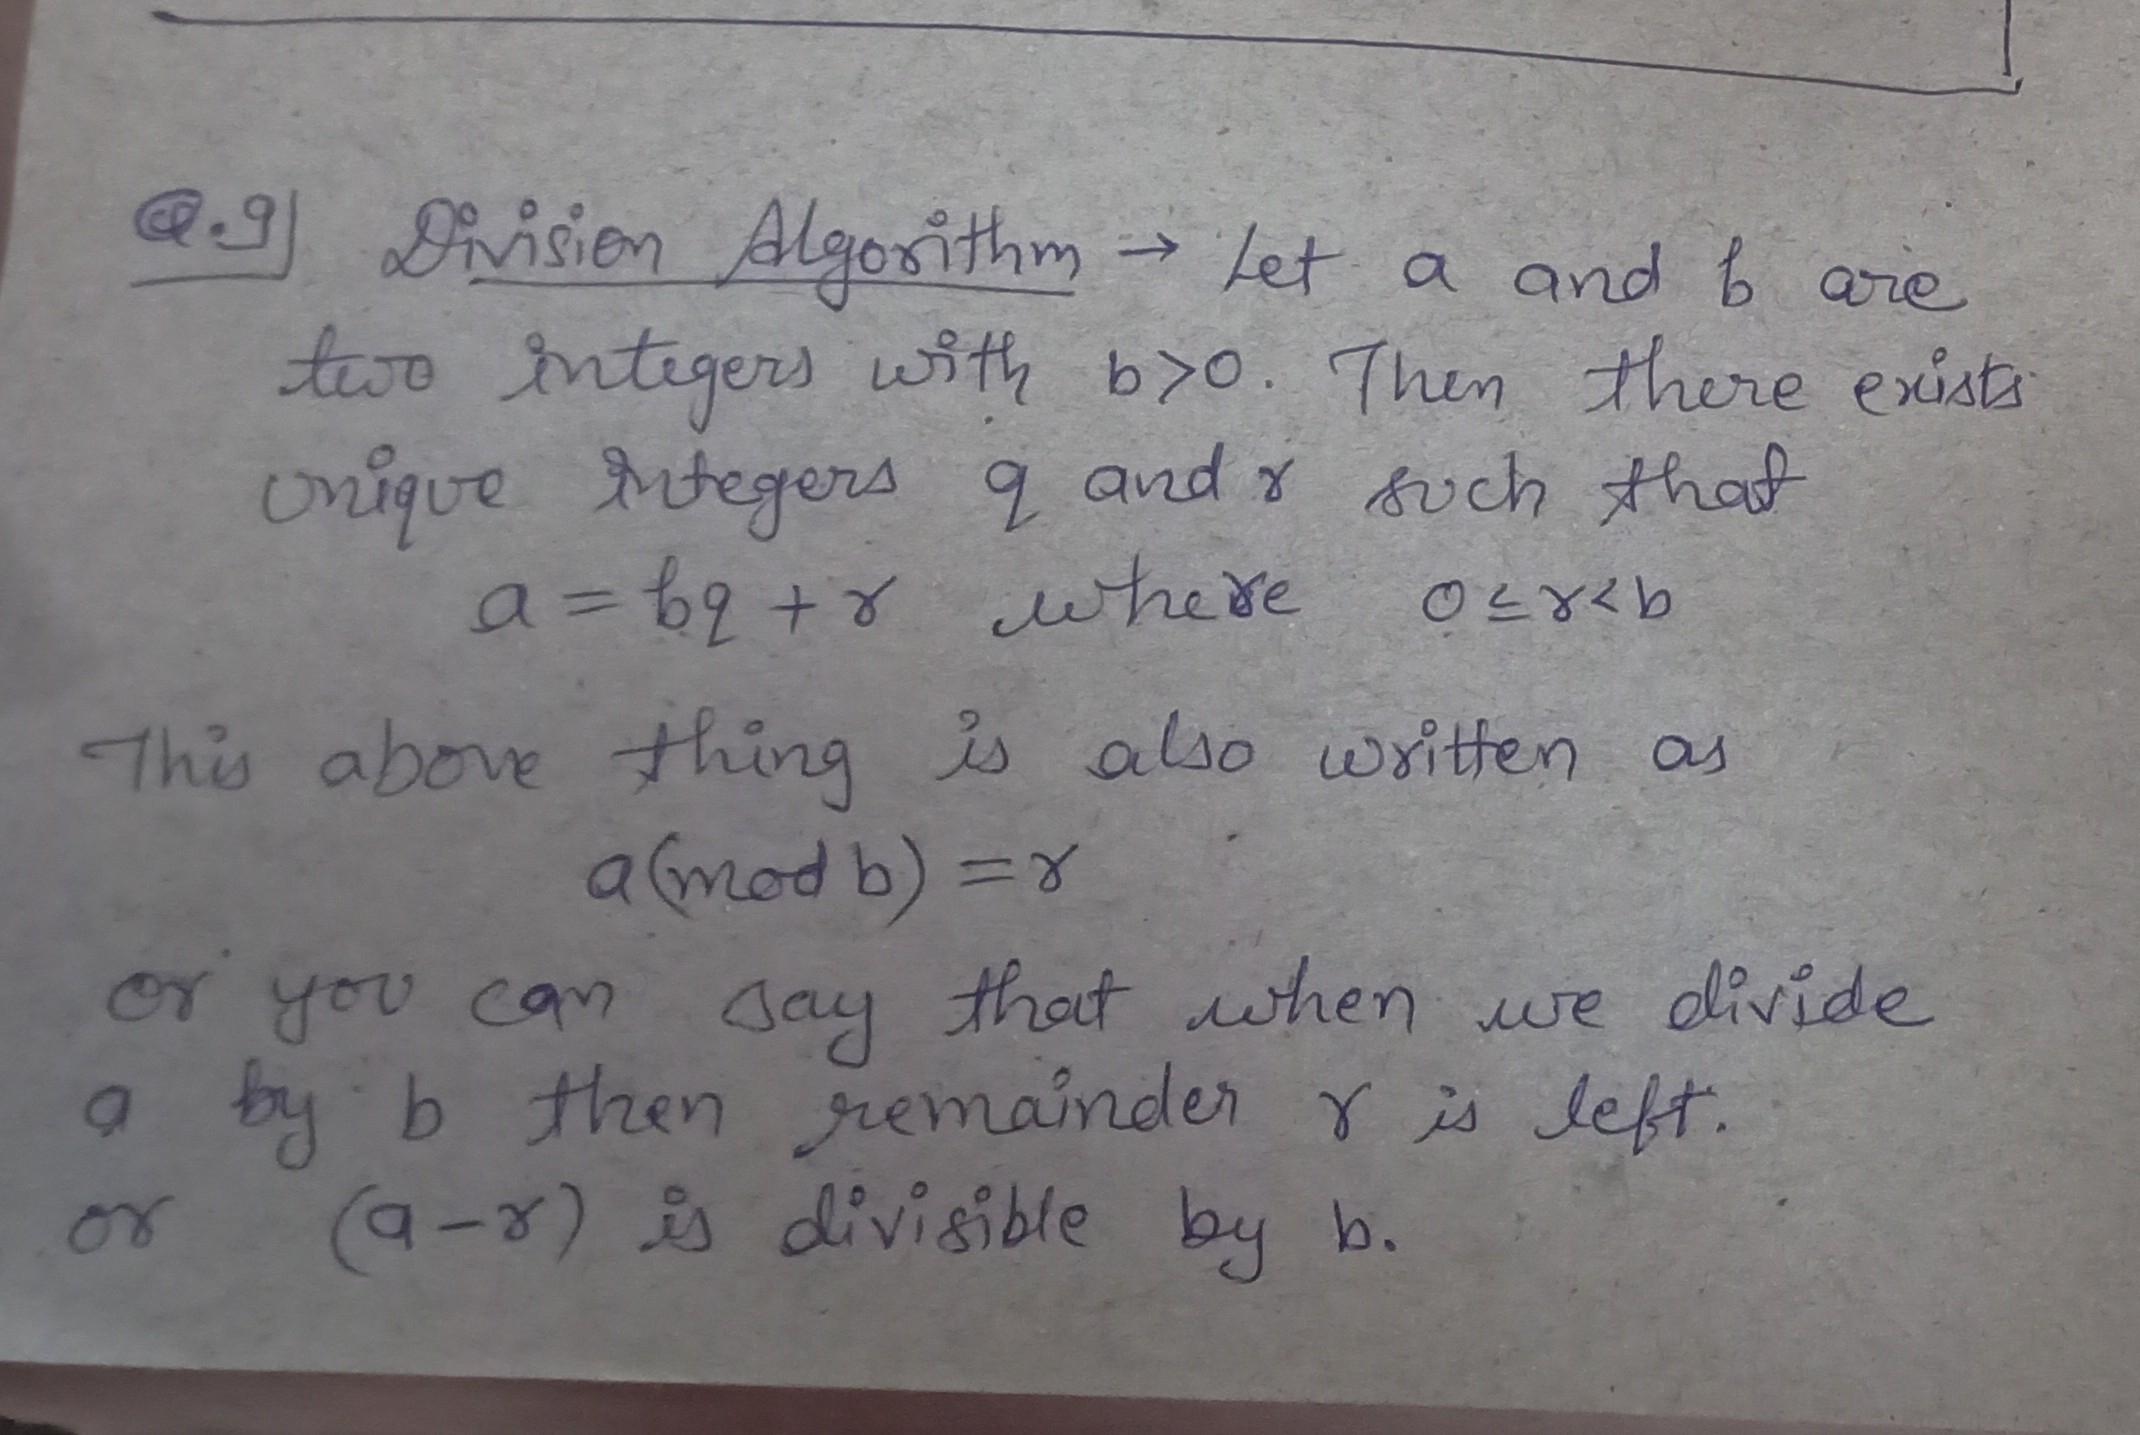 Q.9) Division Algorithm → Let a and b are
two integers with b>0. Then there exists
unique integers q and r such that
a = bq + r where 0≤r<b
This above thing is also written as
a(mod b) = r
or you can say that when we divide
a by b then remainder r is left.
or (a-r) is divisible by b.